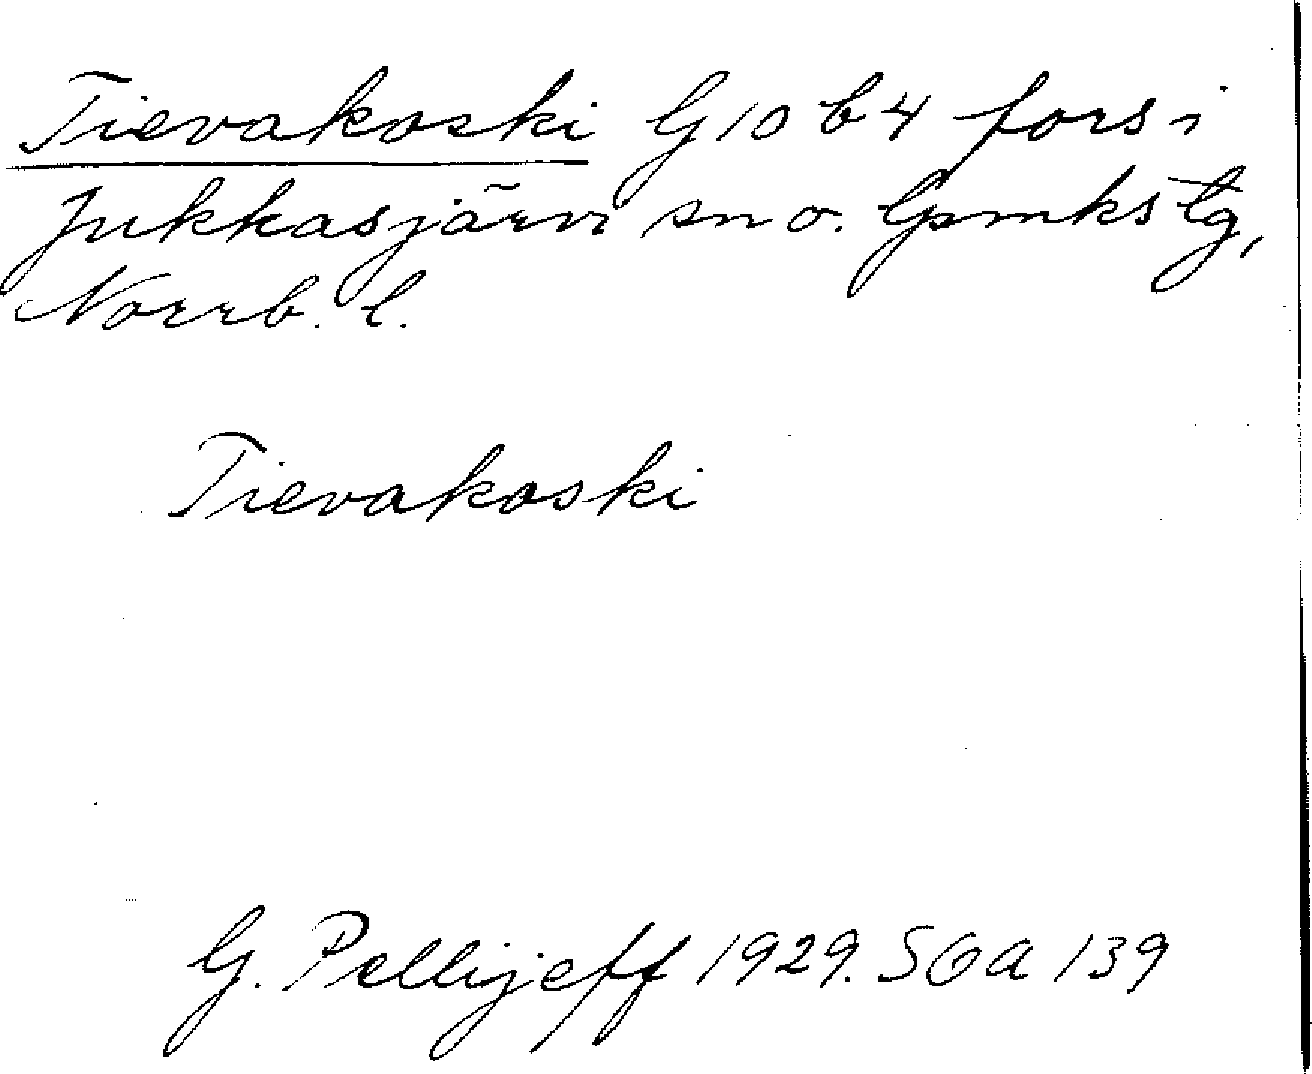 Tievakoski G 10 b 4 fors i
Jukkasjärvi sn o. Gpmkstg,
Norrb. l.
Tievakoski
G. Pellijeff 1929. SOA 139